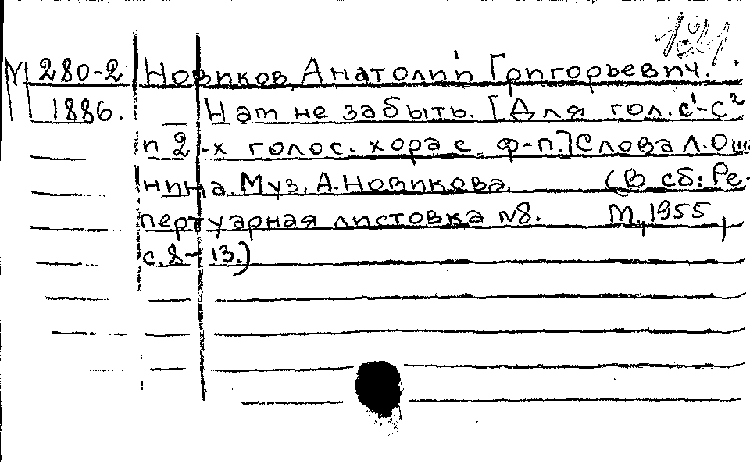 М 280-2 Новиков, Анатолий Григорьевич.
1886. Нам не забыть. [Для гол. с¹-с²
и 2-х голос. хора с ф-п.] Слова Л. Оша
нина. Муз. А. Новикова. (В сб: Ре-
пертуарная листовка №8. М., 1955,
с. 8-13.)